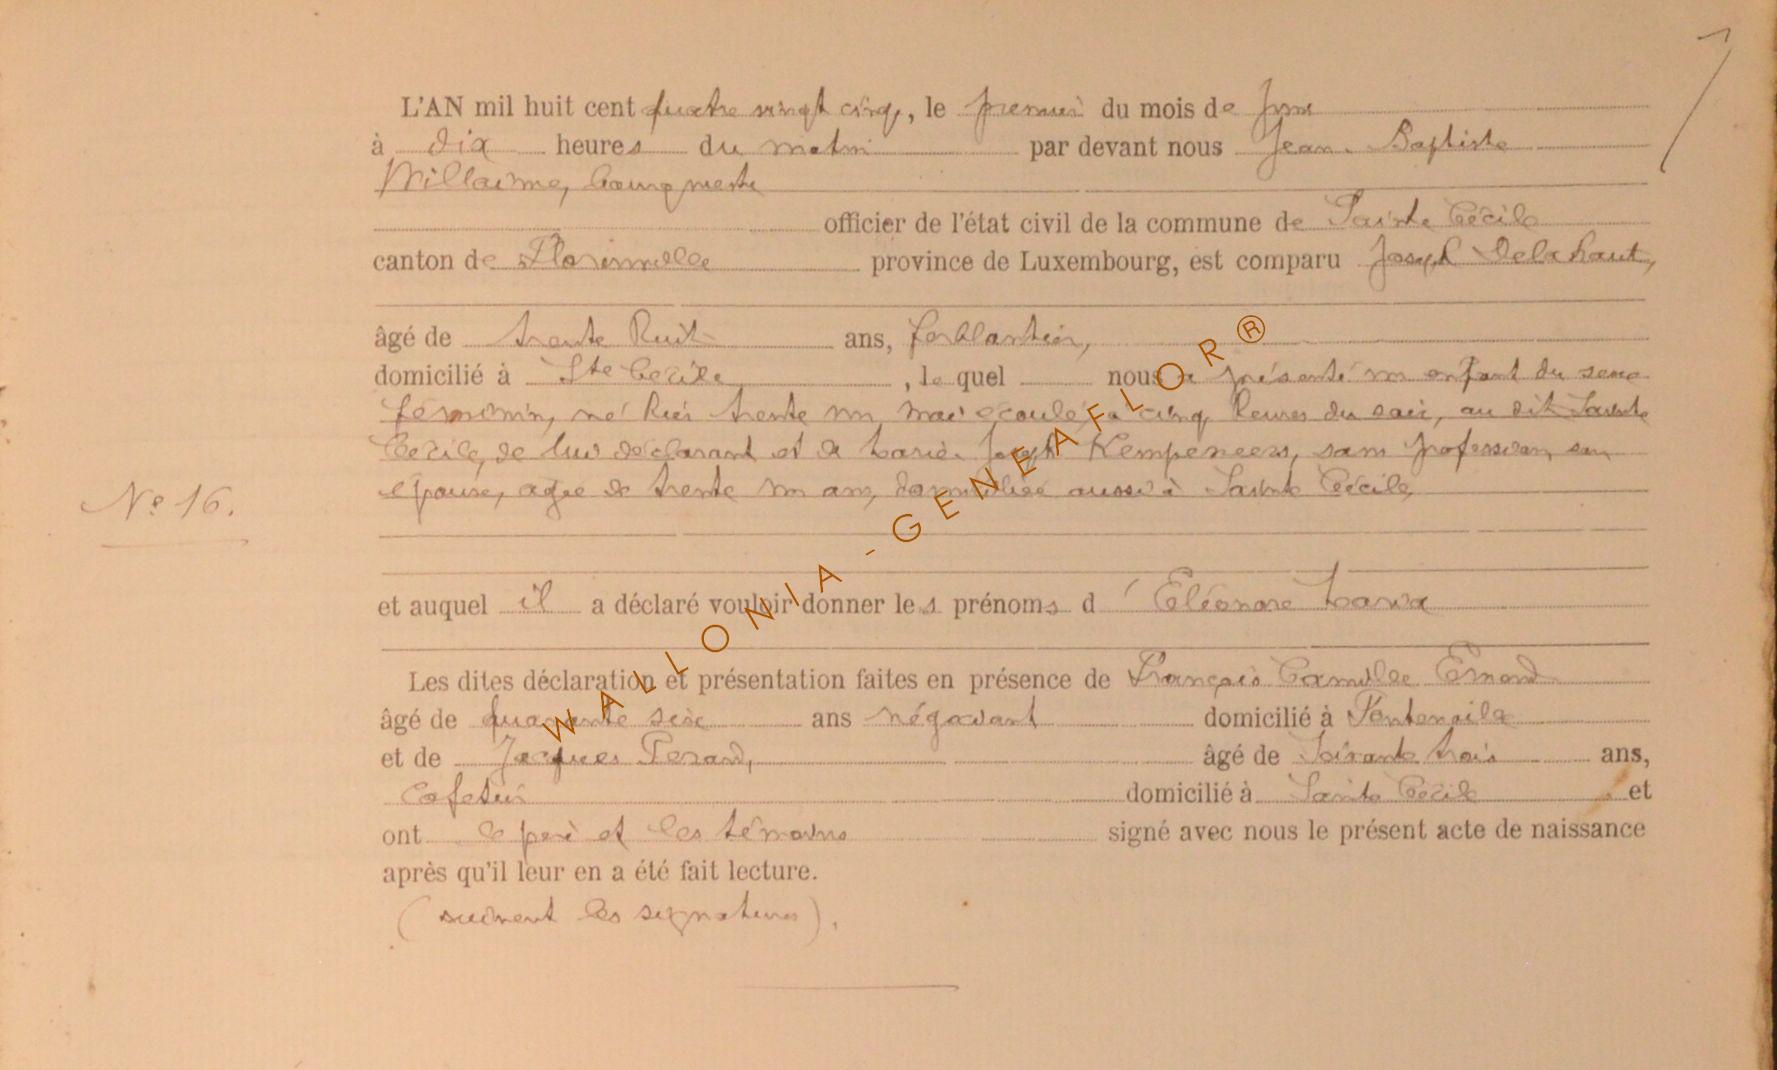 L'AN mil huit cent quatre vingt cinq, le premier du mois de Juin
à dix heures du matin par devant nous Jean-Baptiste
Willaime, bourgmestre
officier de l'état civil de la commune de Sainte Cécile
canton de Florenville province de Luxembourg, est comparu Joseph Delahaut,
âgé de trente huit ans, ferblantier,
domicilié à Ste Cécile, le quel nous a présenté un enfant du sexe
féminin, né hier trente un mai écoulé, à cinq heures du soir, au dit Sainte
Cécile, de lui déclarant et de Marie-Joseph Kempeneers, sans profession, son
épouse, agée de trente un ans, domiciliée aussi à Sainte Cécile,
N° 16.
et auquel il a déclaré vouloir donner les prénoms d'Eléonore Maria
Les dites déclaration et présentation faites en présence de François Camille Emond
âgé de quarante six ans négociant domicilié à Fontenoille
et de Jacques Perard, âgé de Soixante trois ans,
domicilié à Sainte Cécile et
ont le père et les témoins signé avec nous le présent acte de naissance
après qu'il leur en a été fait lecture.
(suivent les signatures).
WALLONIA-GENEAFLOR®